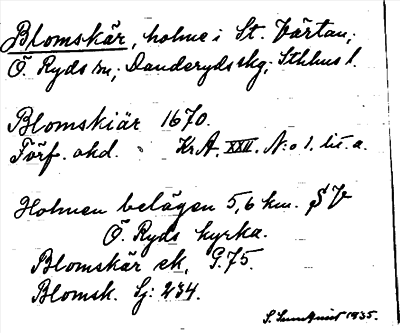 Blomskär, holme i St. Värtan;
Ö. Ryds sn; Danderyds skg; Sthlms l.
Blomskiär 1670.
Förf. okd. Kr A. XXII. N:o 1. lit. a.
Holmen belägen 5,6 km. SV
Ö. Ryds kyrka.
Blomskär ek. G. 75.
Blomsk. Sj: 234.
1935.